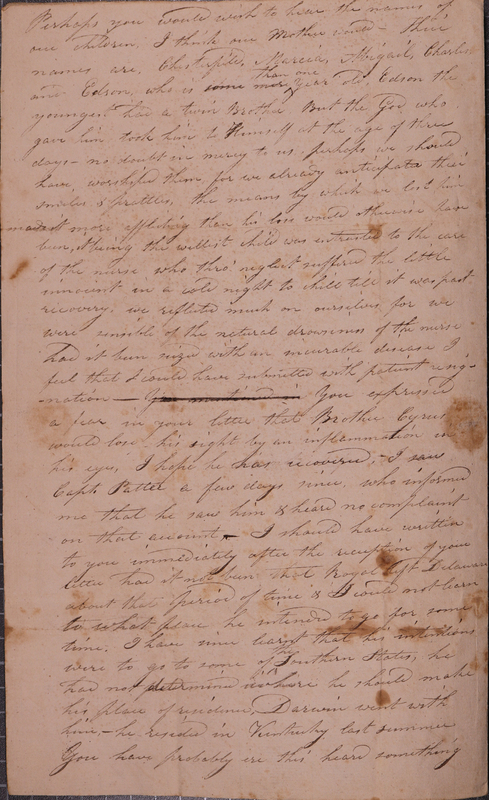 Perhaps you would wish to hear the names of
our children, I think our Mother would - their
names are, Marcia, Abigail, Charles
and Edson, who is some more than one year old, Edson the
youngest had a twin Brother, But the God who
gave him took him to Himself at the age of three
days - no doubt in mercy to us, perhaps we should
have worshiped them, for we already anticipate their
smiles & prattles, the means by which we lost him
made it more afflicting than his loss would otherwise have
been, it being the willist child was entrusted to the care
of the nurse who thro' neglect suffered the little
innocent in a cold night to chill till it was past
recovery, we reflected much on ourselves for we
were sensible of the natural drowsiness of the nurse
had it been seized with an incurable disease I
feel that I could have submitted with patient resig-
nation — You expressed
a fear in your letter that Brother Cyrus
would lose his sight by an inflammation in
his eyes, I hope he has recovered, - I saw
Capt. a few days since, who informed
me that he saw him & heard no complaint
on that account, - I should have written
to you immediately after the reception of your
letter had it not been that Royal left Delaware
about that period of time & I could not learn
to what place he intended to go for some
time, I have since learnt that his intentions
were to go to some of the Southern States, he
had not determined where he should make
his place of residence, Darwin went with
him, - he resided in Kentucky last summer
You have probably ere this heard something